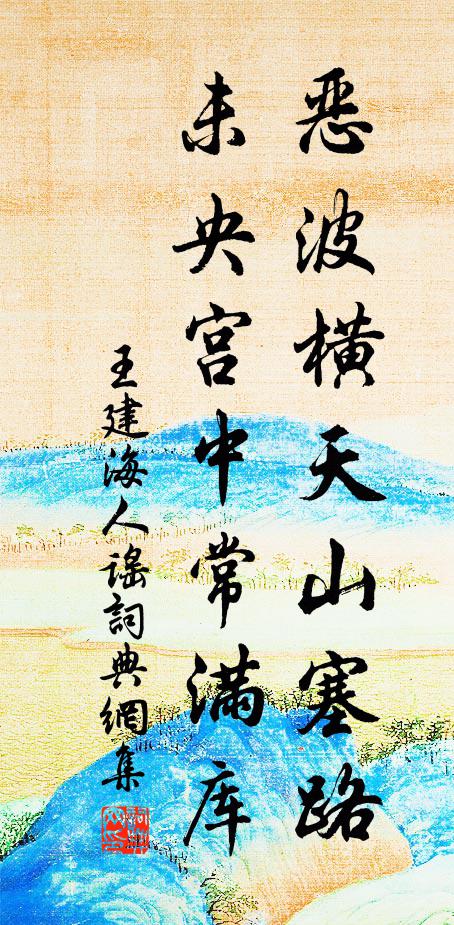 恶波横天山塞路
未央宫中常满库
王建海人谣詞典網集